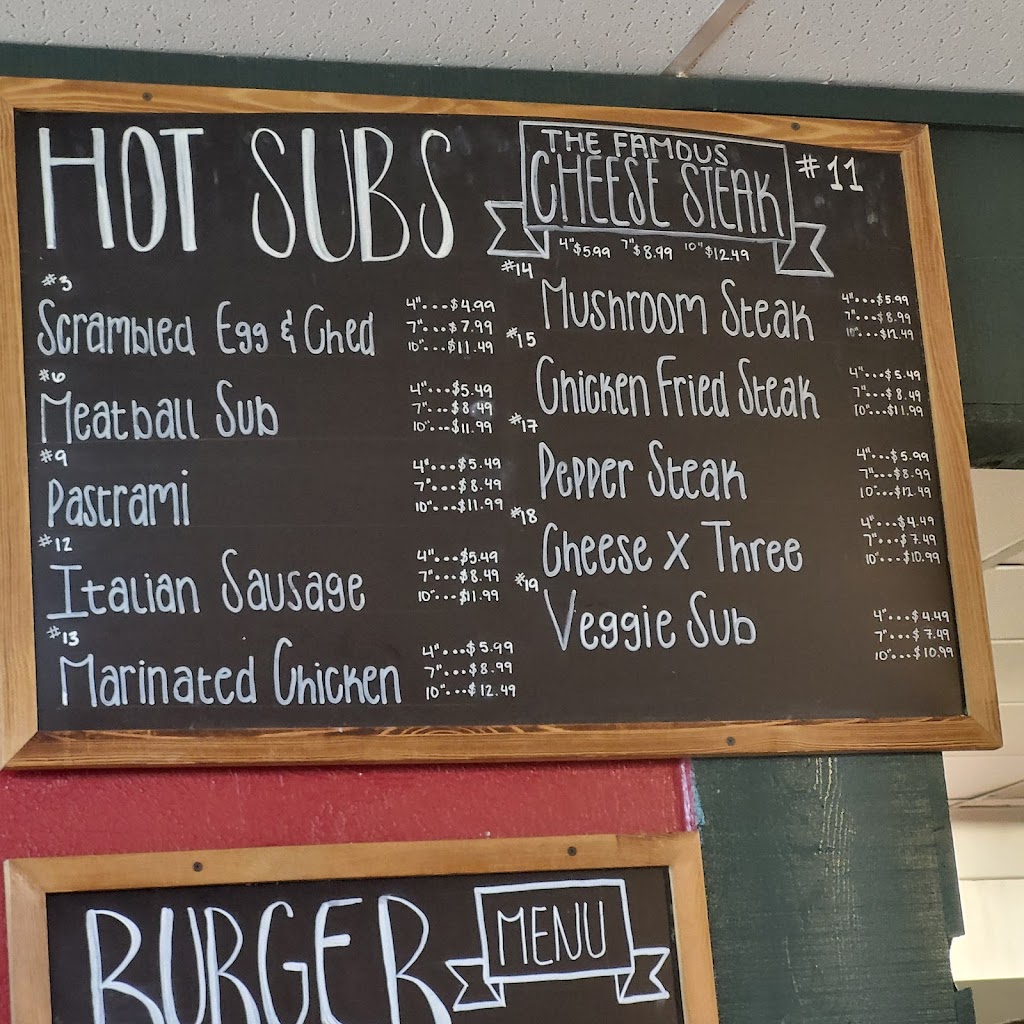 HOT SUBS
THE FAMOUS
CHEESE STEAK
#11
4" $5.99 7" $8.99 10" $12.49
#3
Scrambled Egg & Ched
4"...$4.99
7"...$7.99
10"...$11.49
#6
Meatball Sub
4"...$5.49
7"...$8.49
10"...$11.99
#9
Pastrami
4"...$5.49
7"...$8.49
10"...$11.99
#12
Italian Sausage
4"...$5.49
7"...$8.49
10"...$11.99
#13
Marinated Chicken
4"...$5.99
7"...$8.99
10"...$12.49
#14
Mushroom Steak
4"...$5.99
7"...$8.99
10"...$12.49
#15
Chicken Fried Steak
4"...$5.49
7"...$8.49
10"...$11.99
#17
Pepper Steak
4"...$5.99
7"...$8.99
10"...$12.49
#18
Cheese x Three
4"...$4.49
7"...$7.49
10"...$10.99
#19
Veggie Sub
4"...$4.49
7"...$7.49
10"...$10.99
BURGER
MENU